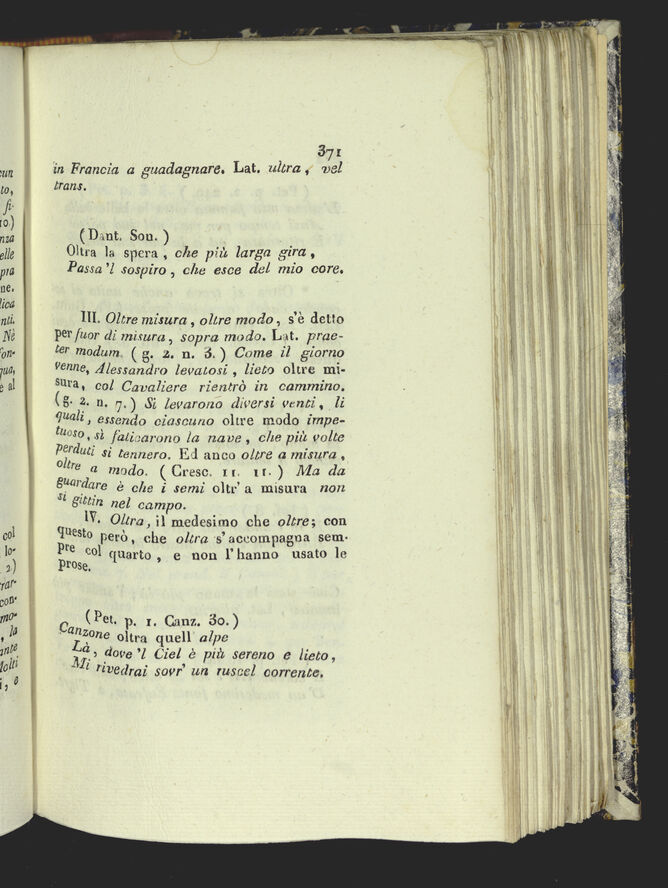 371
in Francia a guadagnare. Lat. ultra, vel
trans.
(Dant. Son.)
Oltra la spera, che più larga gira,
Passa 'l sospiro, che esce del mio core.
III. Oltre misura, oltre modo, s'è detto
per fuor di misura, sopra modo. Lat. prae-
ter modum. (g. 2. n. 3.) Come il giorno
venne, Alessandro levatosi, lieto oltre mi-
sura, col Cavaliere rientrò in cammino.
(g. 2. n. 7.) Si levarono diversi venti, li
quali, essendo ciascuno oltre modo impe-
tuoso, sì faticarono la nave, che più volte
perduti si tennero. Ed anco oltre a misura,
oltre a modo. (Cresc. 11. 11.) Ma da
guardare è che i semi oltr' a misura non
si gittin nel campo.
IV. Oltra, il medesimo che oltre; con
questo però, che oltra s'accompagna sem-
pre col quarto, e non l'hanno usato le
prose.
(Pet. p. 1. Canz. 30.)
Canzone oltra quell' alpe
Là, dove 'l Ciel è più sereno e lieto,
Mi rivedrai sovr' un ruscel corrente.